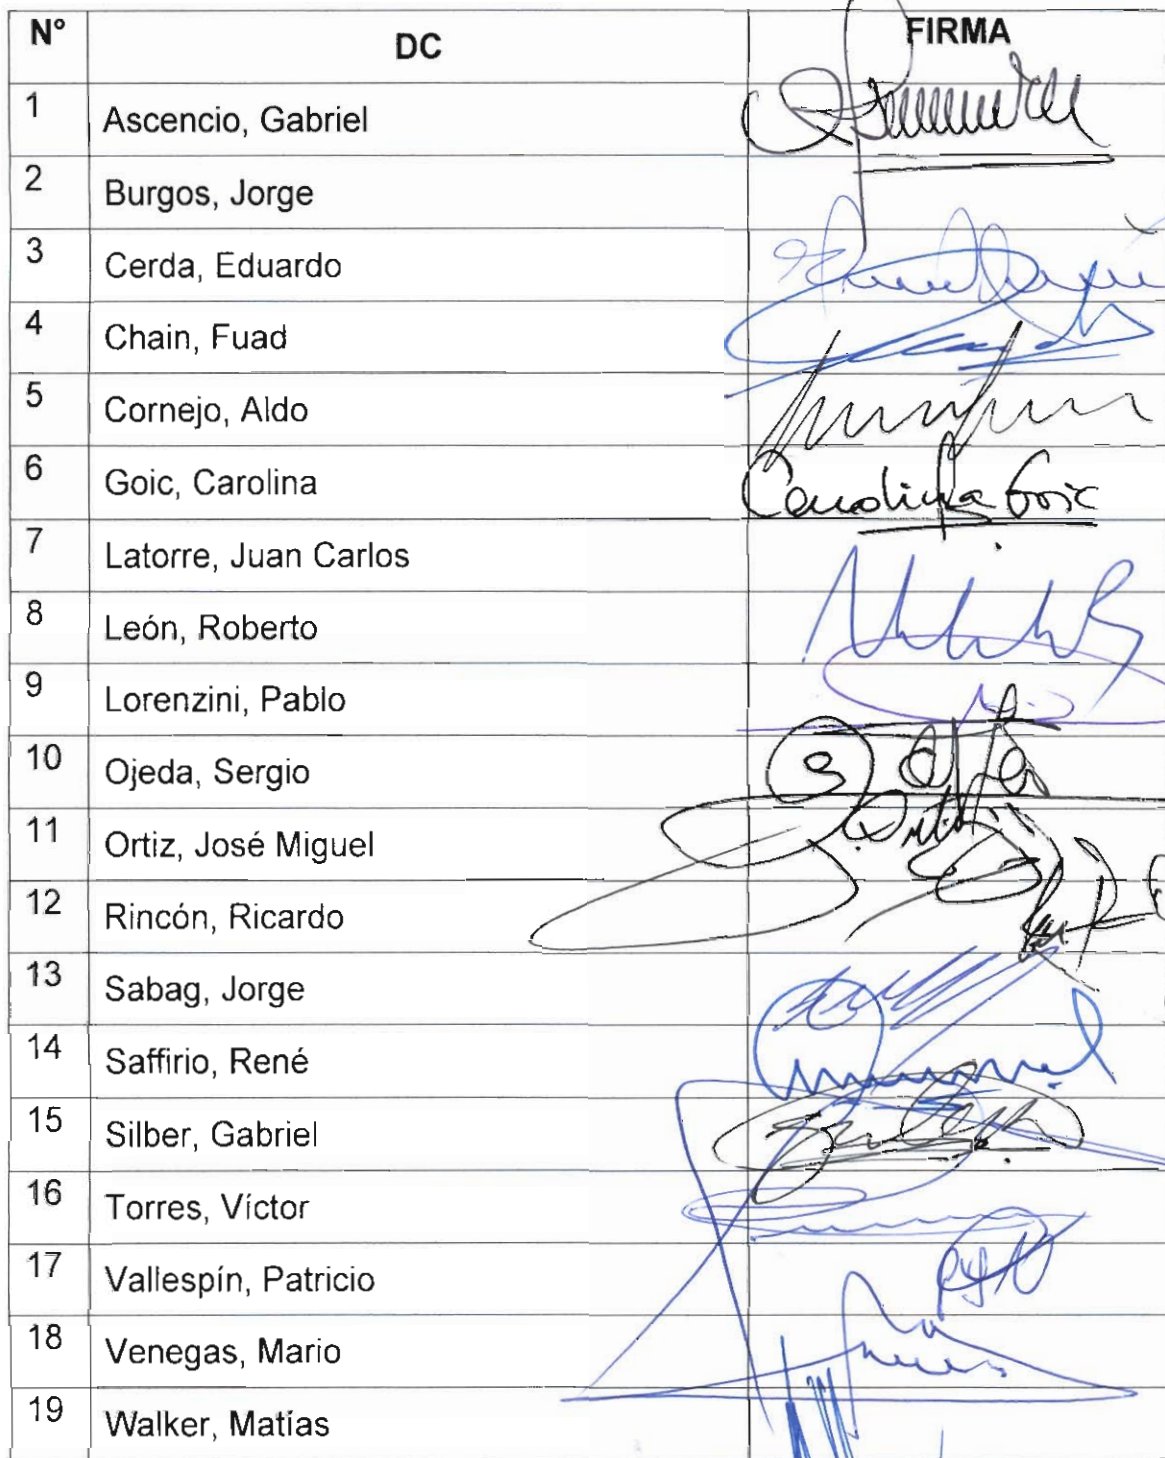 N° DC FIRMA
1 Ascencio, Gabriel
2 Burgos, Jorge
3 Cerda, Eduardo
4 Chain, Fuad
5 Cornejo, Aldo
6 Goic, Carolina Carolina Goic
7 Latorre, Juan Carlos
8 León, Roberto
9 Lorenzini, Pablo
10 Ojeda, Sergio
11 Ortiz, José Miguel Ortiz
12 Rincón, Ricardo
13 Sabag, Jorge
14 Saffirio, René
15 Silber, Gabriel
16 Torres, Víctor
17 Vallespín, Patricio
18 Venegas, Mario
19 Walker, Matías